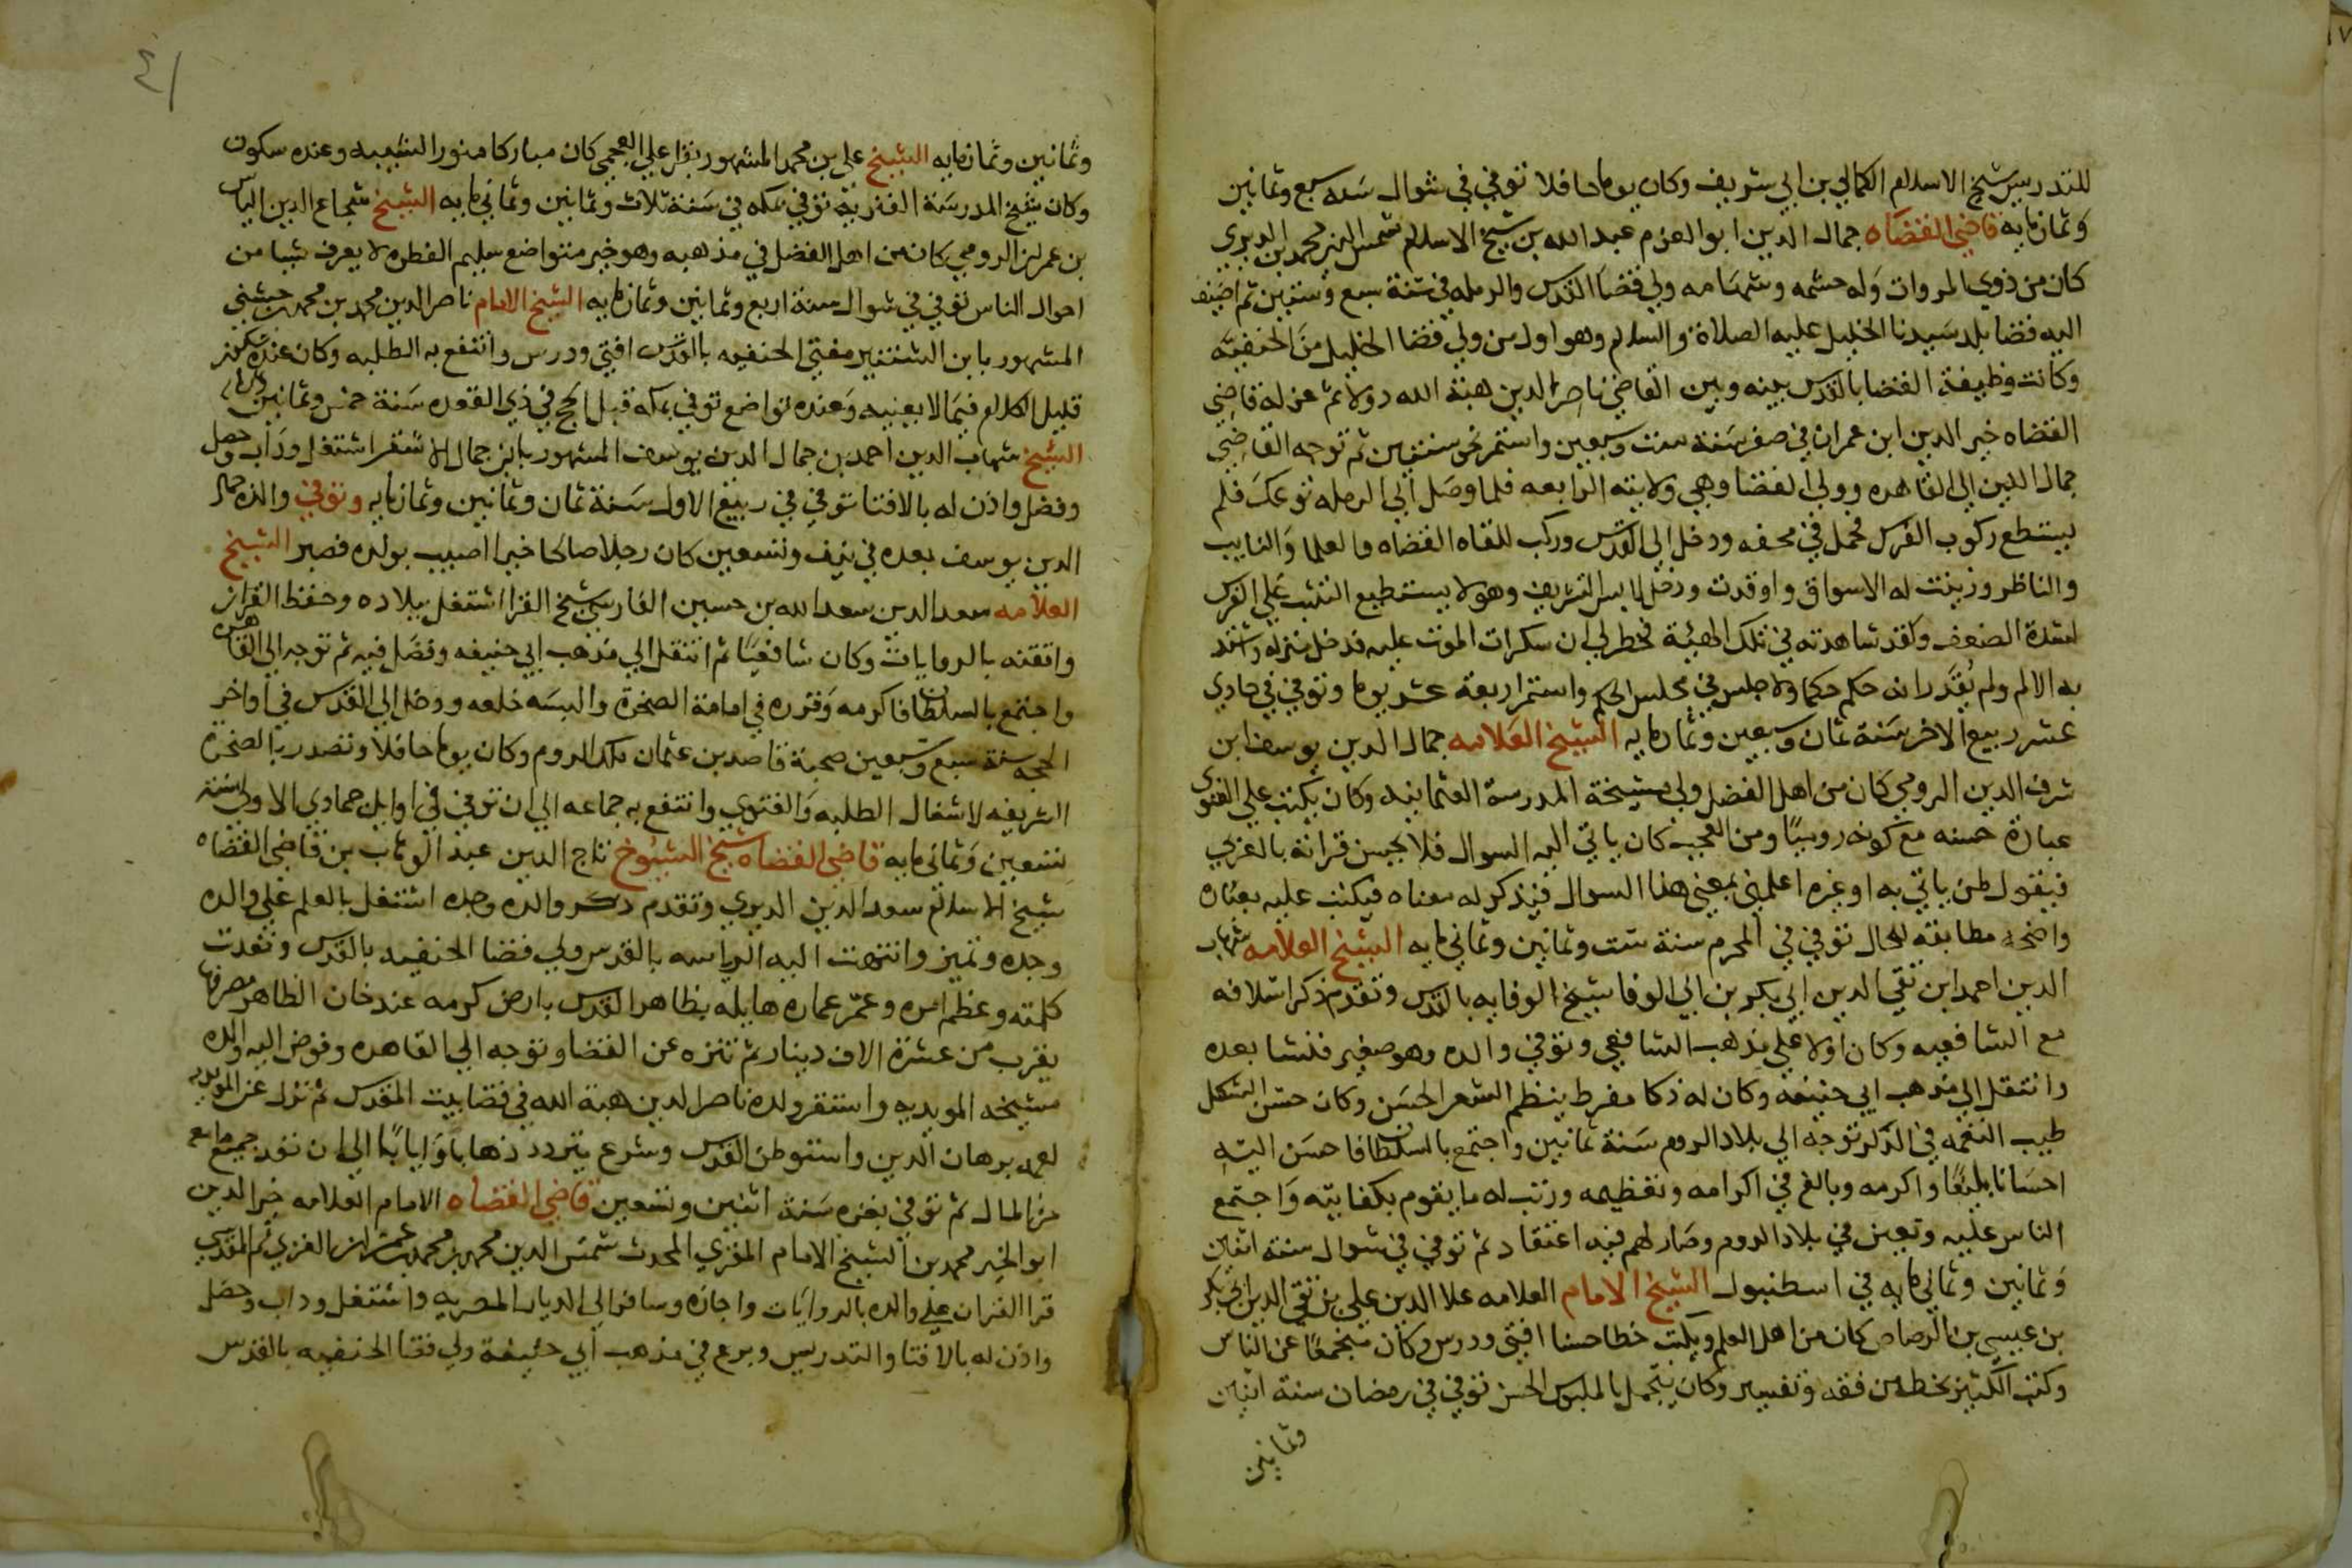 للتدريس شيخ الاسلام الكمالي بن ابي شريف وكان يوما حافلا توفي في شوال سنه سبع وثمانين
وثمانمايه قاضي القضاه جمال الدين ابو العزم عبد الله بن شيخ الاسلام شمس الدين محمد بن الديري
كان من ذوي المروات وله حشمه وشهامه ولي قضا القدس والرمله في سنة سبع وستين ثم اضيف
اليه قضا بلد سيدنا الخليل عليه الصلاة والسلام وهو اول من ولي قضا الخليل من الحنفيه
وكانت وظيفة القضا بالقدس بينه وبين القاضي ناصر الدين هبة الله دولا ثم عزله قاضي
القضاه خير الدين ابن عمران في صفر سنة ست وسبعين واستمر نحو سنتين ثم توجه القاضي
جمال الدين الي القاهره وولي القضا وهي ولايته الرابعه فلما وصل الي الرمله توعك فلم
يستطع ركوب الفرس فحمل في محفه ودخل الي القدس وركب للقاه القضاه والعلما والنايب
والناظر وزينت له الاسواق واوقدت ودخل لابس التشريف وهو لا يستطيع التثبت علي الفرس
لشدة الضعف ولقد شاهدته في تلك الهيئة فخطر لي ان سكرات الموت عليه فدخل منزله واشتد
به الالم ولم يقدر انه حكم حكما ولا جلس في مجلس الحكم واستمر اربعة عشر يوما وتوفي في حادي
عشر ربيع الاخر سنة ثمان وسبعين وثمانمايه الشيخ العلامه جمال الدين يوسف ابن
شرف الدين الرومي كان من اهل الفضل ولي مشيخة المدرسة العثمانيه وكان يكتب علي الفتوي
عبارة حسنه مع كونه روميا ومن العجيب كان ياتي اليه السوال فلا يحسن قراته بالعربي
فيقول لمن ياتي به او غيره اعلمني بمعني هذا السوال فيذكر له معناه فيكتب عليه بعباره
واضحه مطابقه للحال توفي في المحرم سنة ست وثمانين وثماني مايه الشيخ العلامه شهاب
الدين احمد ابن تقي الدين ابي بكر بن ابي الوفا شيخ الوفايه بالقدس وتقدم ذكر اسلافه
مع الشافعيه وكان اولا علي مذهب الشافعي وتوفي والده وهو صغير فنشا بعده
وانتقل الي مذهب ابي حنيفه وكان له ذكا مفرط ينظم الشعر الحسن وكان حسن الشكل
طيب النغمه في الذكر توجه الي بلاد الروم سنة ثمانين واجتمع بالسلطان فاحسن اليه
احسانا بليغا واكرمه وبالغ في اكرامه وتعظيمه ورتب له ما يقوم بكفايته واجتمع
الناس عليه وتعين في بلاد الروم وصار لهم فيه اعتقاد ثم توفي في شوال سنة اثنين
وثمانين وثماني مايه في اسطنبول الشيخ الامام العلامه علا الدين علي بن تقي الدين ابي بكر
بن عيسي بن الرصاص كان من اهل العلم ويكتب خطا حسنا افتي ودرس وكان منجمعا عن الناس
وكتب الكثير بخطه من فقه وتفسير وكان يتجمل بالملبوس الحسن توفي في رمضان سنة اثنين
وثمانين
٤١
وثمانين وثمانمايه الشيخ علي بن محمد المشهور بقرا علي العجمي كان مباركا منور الشيبه وعنده سكون
وكان شيخ المدرسة القدريه توفي بمكه في سنة ثلاث وثمانين وثماني مايه الشيخ شجاع الدين الياس
بن عمر الرومي كان من اهل الفضل في مذهبه وهو خير متواضع سليم الفطره لا يعرف شيا من
احوال الناس توفي في شوال سنة اربع وثمانين وثمانمايه الشيخ الامام ناصر الدين محمد بن محمد
المشهور بابن الشنتير مفتي الحنفيه بالقدس افتي ودرس وانتفع به الطلبه وكان عنده سكون
قليل الكلام فيما لا يعنيه وعنده تواضع توفي بمكه قبل الحج في ذي القعده سنة خمس وثمانين
الشيخ شهاب الدين احمد بن جمال الدين يوسف المشهور بابن جمال الاشقر اشتغل وداب وحصل
وفضل واذن له بالافتا توفي في ربيع الاول سنة ثمان وثمانين وثمانمايه وتوفي والده جمال
الدين يوسف بعده في نيف وتسعين كان رجلا صالحا خيرا اصيب بولده فصبر الشيخ
العلامه سعد الدين سعد الله بن حسين الفارسي شيخ القرا اشتغل ببلاده وحفظ القران
واتقنه بالروايات وكان شافعيا ثم انتقل الي مذهب ابي حنيفه وفضل فيه ثم توجه الي القاهره
واجتمع بالسلطان فاكرمه وقرره في امامة الصخرة والبسه خلعه ودخل الي القدس في اواخر
الحجه سنة سبع وسبعين صحبة قاصد بن عثمان ملك الروم وكان يوما حافلا وتصدر بالصخرة
الشريفه لاشغال الطلبه والفتوي وانتفع به جماعه الي ان توفي في اوايل جمادي الاولي سنة
تسعين وثماني مايه قاضي القضاه شيخ الشيوخ تاج الدين عبد الوهاب بن قاضي القضاه
شيخ الاسلام سعد الدين الديري وتقدم ذكر والده وجده اشتغل بالعلم علي والده
وجده وتميز وانتهت اليه الرياسه بالقدس ولي قضا الحنفيه بالقدس ونفدت
كلمته وعظم امره وعمر عماره هايله بظاهر القدس بارض كرمه عند خان الظاهر مصرفها
يقرب من عشرة الاف دينار ثم تنزه عن القضا وتوجه الي القاهره وفوض اليه والده
مشيخه المويديه واستقر ولده ناصر الدين هبة الله في قضا بيت المقدس ثم نزل عن المويديه
لعمه برهان الدين واستوطن القدس وشرع يتردد ذهابا وايابا الي ان نفد جميع ما معه
من المال ثم توفي بغزه سنة اثنين وتسعين قاضي القضاه الامام العلامه خير الدين
ابو الخير محمد بن الشيخ الامام المقري المحدث شمس الدين محمد بن محمد بن عمران الغزي ثم المقدسي
قرا القران علي والده بالروايات واجازه وسافر الي الديار المصريه واشتغل وداب وحصل
واذن له بالافتا والتدريس وبرع في مذهب ابي حنيفة ولي قضا الحنفيه بالقدس